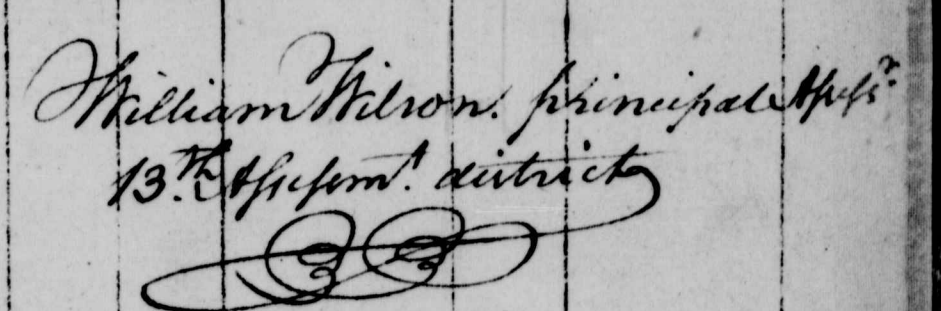 William Wilson. principal Assess.r
13.th Assessmt. district